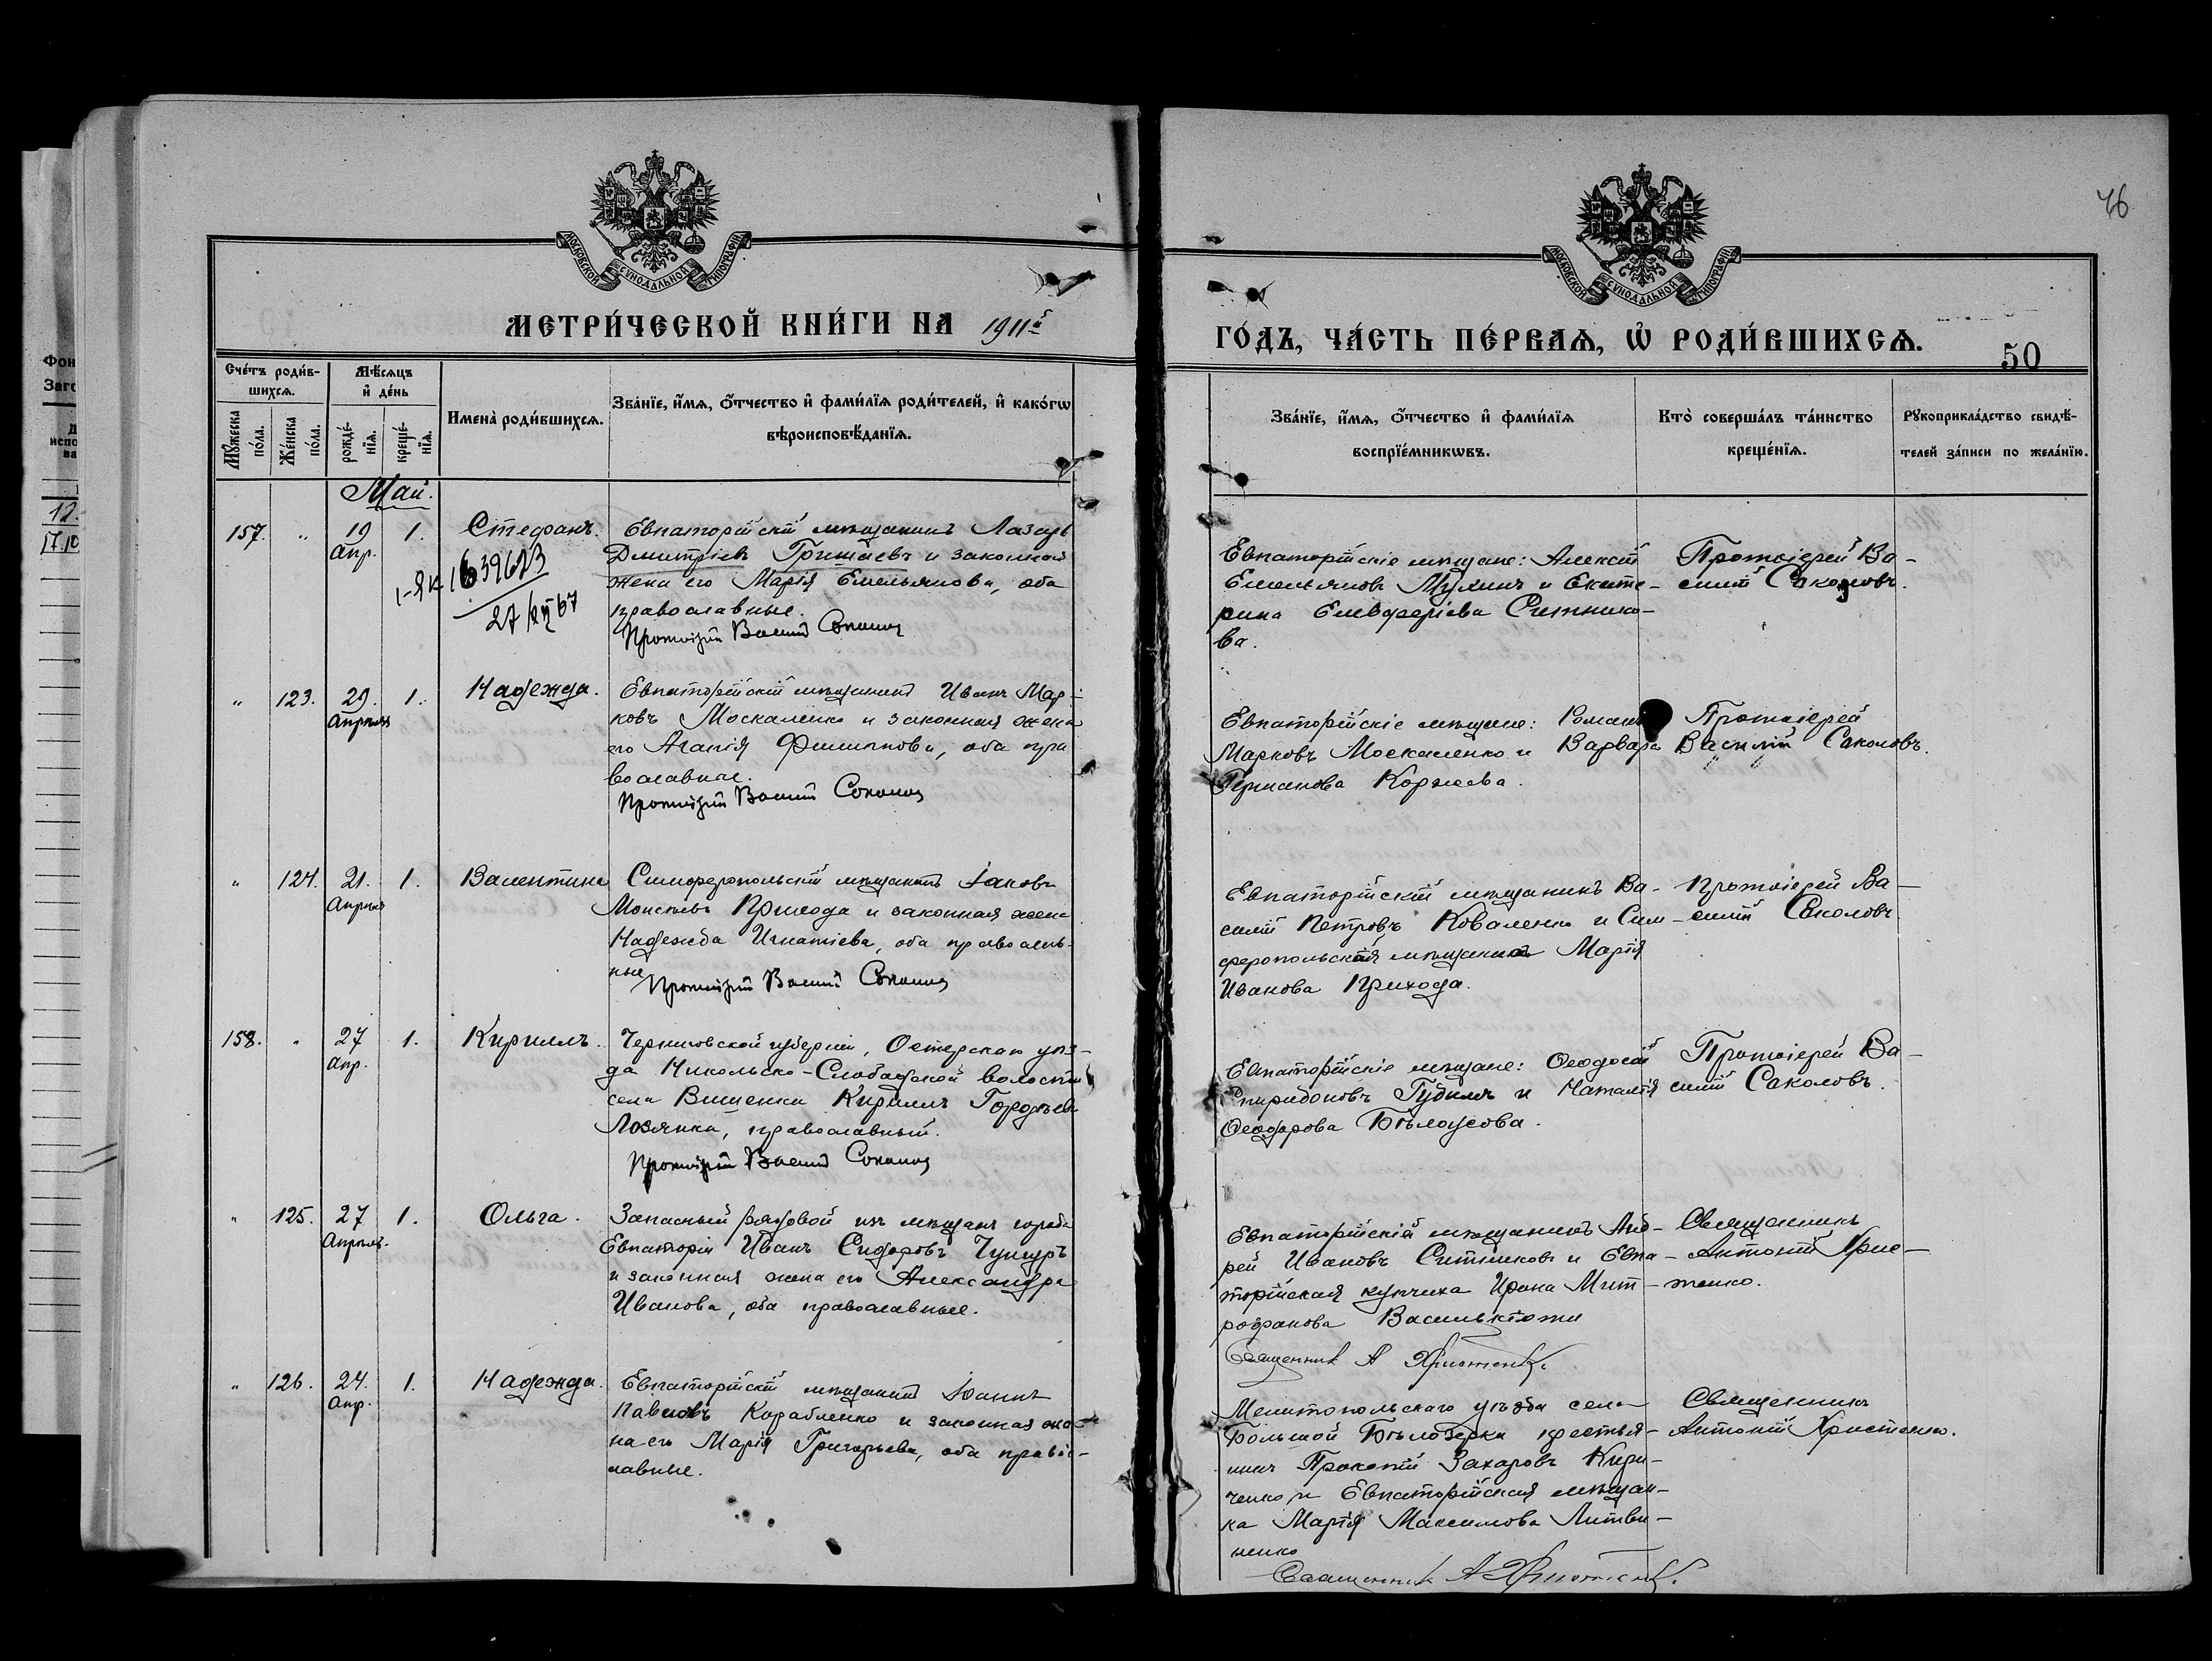 76
МОСКОВСКОЙ СУНОДАЛЬНОЙ ТИПОГРАФІИ
МОСКОВСКОЙ СУНОДАЛЬНОЙ ТИПОГРАФІИ
МЕТРИ́ЧЕСКОЙ КНИ́ГИ НА 1911й
ГО́ДЪ, ЧА́СТЬ ПЕ́РВАѦ, Ѡ РОДИ́ВШИХСѦ.
50
Сче́тъ роди́в-
шихсѧ.
Мѣ́сѧцъ
и҆ де́нь
Мꙋ́жеска
по́ла.
Же́нска
по́ла.
рожде́-
нїѧ.
креще́-
нїѧ.
Имена̀ роди́вшихсѧ.
Зва́нїе, и҆́мѧ, ѻ҆́тчество и҆ фами́лїѧ роди́телей, и҆ како́гѡ
вѣроисповѣ́данїѧ.
Зва́нїе, и҆́мѧ, ѻ҆́тчество и҆ фами́лїѧ
воспрїе́мникѡвъ.
Кто̀ соверша́лъ та́инство
креще́нїѧ.
Рꙋкоприкла́дство свидѣ́-
телей за́писи по жела́нїю.
Май.
157. " 19 1. Стефанъ.
Апр.
Евпаторійскій мѣщанинъ Лазарь
Дмитріевъ Гришаевъ и законная
жена его Марія Емельянова, оба
православные.
Протоіерей Василій Соколовъ
Евпаторійскіе мѣщане: Алексій
Емельяновъ Мухинъ и Екате-
рина Елевферіева Ситнико-
ва.
Протоіерей Ва-
силій Соколовъ.
" 123. 29. 1. Надежда.
Апрѣля
Евпаторійскій мѣщанинъ Иванъ Мар-
ковъ Москаленко и законная жена
его Агапія Филиппова, оба пра
вославные.
Протоіерей Василій Соколовъ
Евпаторійскіе мѣщане: Романъ
Марковъ Москаленко и Варвара
Германова Коржева.
Протоіерей
Василій Соколовъ.
" 124. 21. 1. Валентина
Апрѣля
Симферопольскій мѣщанинъ Іаковъ
Моисеевъ Прихода и законная жена
Надежда Игнатіева, оба православ-
ные
Протоіерей Василій Соколовъ
Евпаторійскій мѣщанинъ Ва-
силій Петровъ Коваленко и Сим-
феропольская мѣщанка Марія
Иванова Прихода.
Протоіерей Ва-
силій Соколовъ
158. " 27 1. Кириллъ.
Апр.
Черниговской губерніи, Остерскаго уѣз-
да Никольско-Слободской волости
села Вишенки Кириллъ Гордѣевъ
Лозянка, православный.
Протоіерей Василій Соколовъ
Евпаторійскіе мѣщане: Ѳеодосій
Спиридоновъ Гудимъ и Наталія
Ѳеодорова Бѣлоусова.
Протоіерей Ва-
силій Соколовъ.
" 125. 27 1. Ольга.
Апрѣля.
Запасный рядовой изъ мѣщанъ города
Евпаторіи Иванъ Сидоровъ Чунгуръ
и законная жена его Александра
Иванова, оба православные.
Евпаторійскій мѣщанинъ Анд-
рей Ивановъ Ситниковъ и Евпа-
торійская купчиха Ирина Мит-
рофанова
Священникъ А Христенко.
Священникъ
Антоній Хрис-
тенко.
" 126. 24. 1. Надежда.
Апр.
Евпаторійскій мѣщанинъ Іоаннъ
Павловъ Корабленко и законная же-
на его Марія Григорьева, оба правос-
лавные.
Мелитопольскаго уѣзда села
Большой Бѣлозерки крестья-
нинъ Прокопій Захаровъ Кири-
ченко и Евпаторійская мѣщан-
ка Марія Максимова Литви-
ненко
Священникъ А Христенко.
Священникъ
Антоній Христенко.